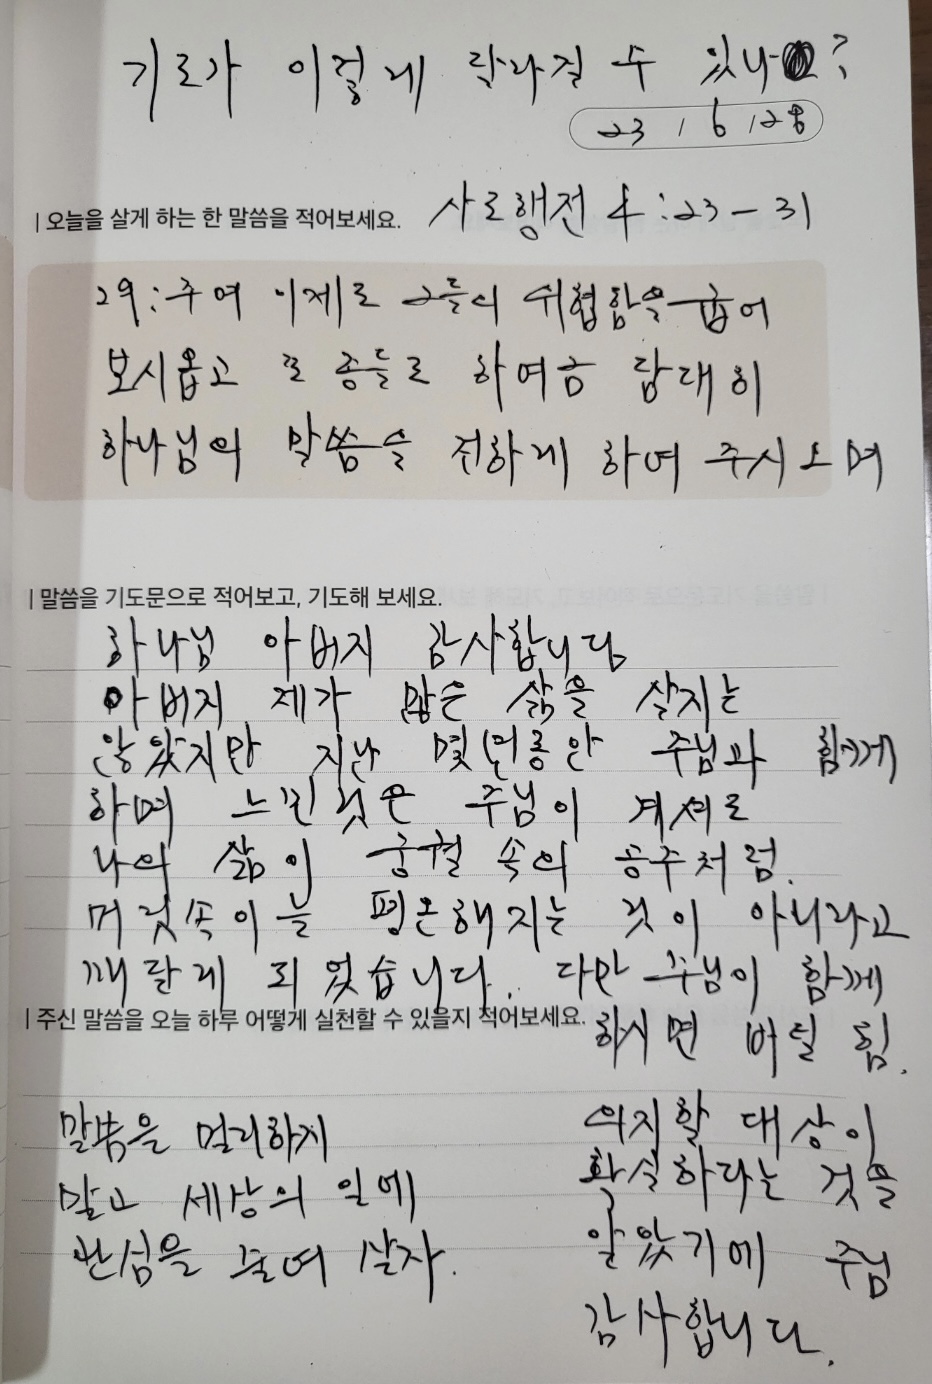 기도가 이렇게 달라질 수 있나?
23 / 6 / 28
| 오늘을 살게 하는 한 말씀을 적어보세요.
사도행전 4:23-31
29:주여 이제도 그들의 위협함을 굽어
보시옵고 또 종들로 하여금 담대히
하나님의 말씀을 전하게 하여 주시오며
| 말씀을 기도문으로 적어보고, 기도해 보세요.
하나님 아버지 감사합니다
아버지 제가 많은 삶을 살지는
않았지만 지난 몇년동안 주님과 함께
하며 느낀것은 주님이 계셔도
나의 삶이 궁궐 속의 공주처럼.
머릿속이 늘 평온해지는 것이 아니라고
깨닫게 되었습니다. 다만 주님이 함께
하시면 버틸 힘.
의지할 대상이
확실하다는 것을
알았기에 주님
감사합니다.
| 주신 말씀을 오늘 하루 어떻게 실천할 수 있을지 적어보세요.
말씀을 멀리하지
말고 세상의 일에
관심을 줄여 살자.